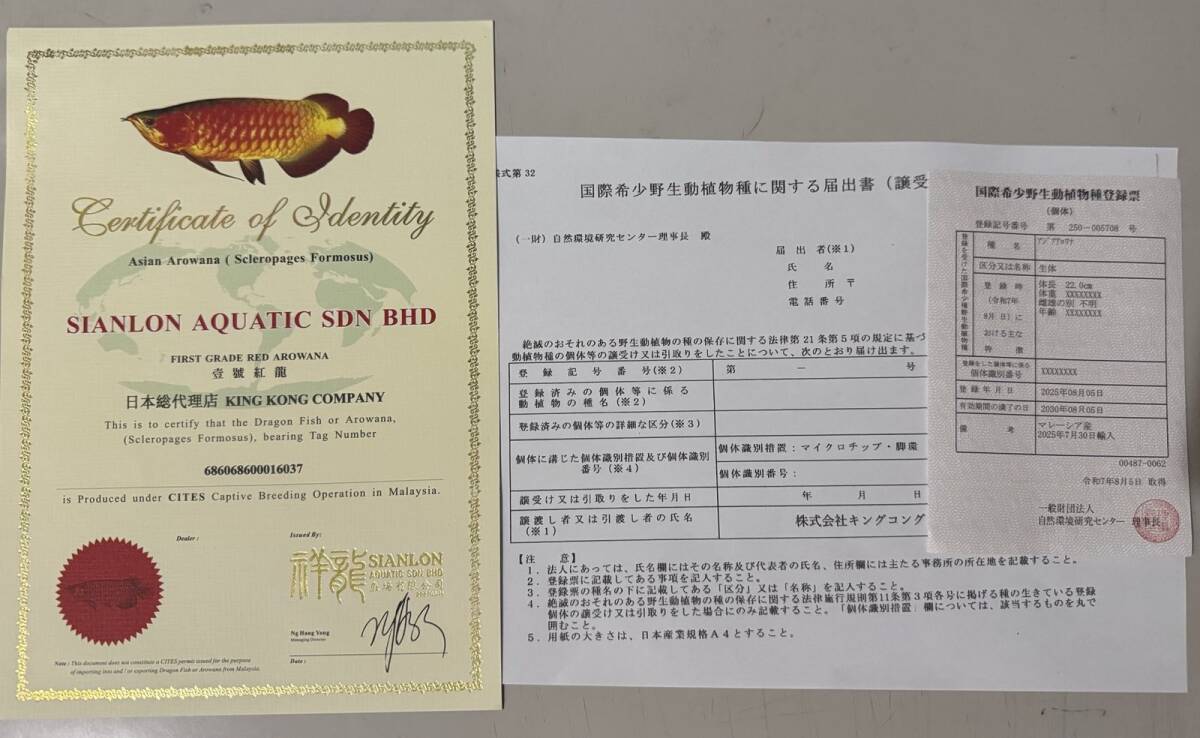 Certificate of Identity
Asian Arowana ( Scleropages Formosus)
SIANLON AQUATIC SDN BHD
FIRST GRADE RED AROWANA
壹號紅龍
日本総代理店 KING KONG COMPANY
This is to certify that the Dragon Fish or Arowana,
(Scleropages Formosus), bearing Tag Number
686068600016037
is Produced under CITES Captive Breeding Operation in Malaysia.
Dealer :
Issued By:
祥龍 SIANLON
AQUATIC SDN BHD
Ng Hang Yong
Managing Director
Date :
Note : This document does not constitute a CITES permit issued for the purpose
of importing into and / or exporting Dragon Fish or Arowana from Malaysia.
式第 32
国際希少野生動植物種に関する届出書（譲受
（一財）自然環境研究センター理事長 殿
届 出 者(※1)
氏 名
住 所 〒
電 話 番 号
絶滅のおそれのある野生動植物の種の保存に関する法律第21条第5項の規定に基づ
動植物種の個体等の譲受け又は引取りをしたことについて、次のとおり届け出ます。
登 録 記 号 番 号(※2) 第 － 号
登録済みの個体等に係る
動植物の種名(※2)
登録済みの個体等の詳細な区分(※3)
個体に講じた個体識別措置及び個体識別
番号(※4)
個体識別措置：マイクロチップ・脚環
個体識別番号：
譲受け又は引取りをした年月日 年 月 日
譲渡し者又は引渡し者の氏名
(※1)
株式会社キングコング
【注 意】
1．法人にあっては、氏名欄にはその名称及び代表者の氏名、住所欄には主たる事務所の所在地を記載すること。
2．登録票に記載してある事項を記入すること。
3．登録票の種名の下に記載してある「区分」又は「名称」を記入すること。
4．絶滅のおそれのある野生動植物の種の保存に関する法律施行規則第11条第3項各号に掲げる種の生きている登録
個体の譲受け又は引取りをした場合にのみ記載すること。「個体識別措置」欄については、該当するものを丸で
囲むこと。
5．用紙の大きさは、日本産業規格A4とすること。
国際希少野生動植物種登録票
（個体）
登録記号番号 第 250-005708 号
登録を受けた国際希少野生動植物種
種 名 アジアアロワナ
区分又は名称 生体
登 録 時
(令和7年
8月 日) に
おける主な
特 徴
体長 22.0cm
体重 XXXXXXXX
雌雄の別 不明
年齢 XXXXXXXX
登録をした個体等に係る
個体識別番号 XXXXXXXX
登 録 年 月 日 2025年08月05日
有効期間の満了の日 2030年08月05日
備 考 マレーシア産
2025年7月30日輸入
00487-0062
令和7年8月5日 取得
一般財団法人
自然環境研究センター 理事長